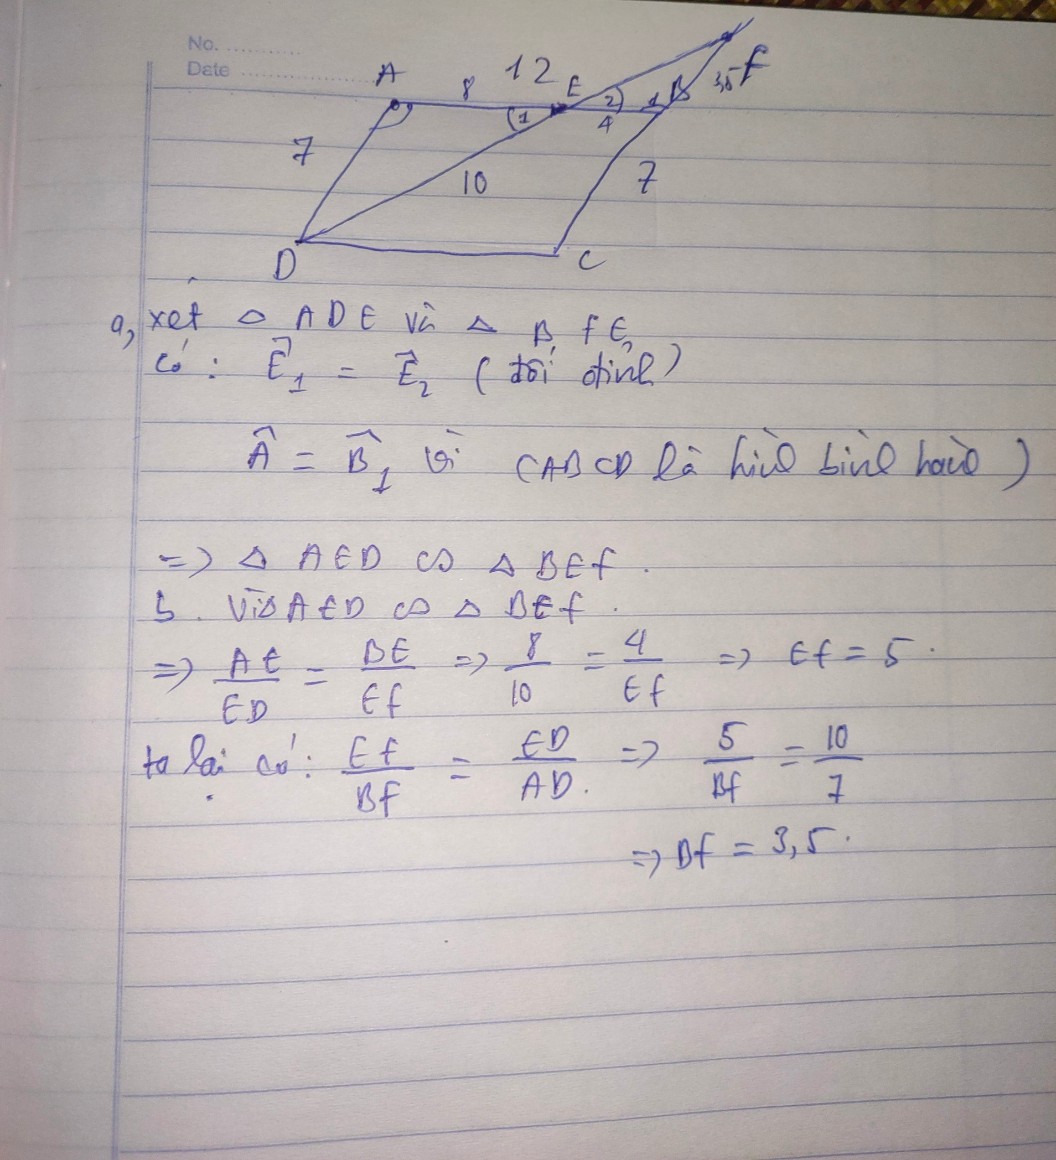 No. ............
Date ....................
A 8 12 E 2 B 3,5 F
(1 4 1
7 10 7
D C
a, xét △ ADE và △ BFE,
có : Ê1 = Ê2 ( đối đỉnh)
Â = B̂1 vì (ABCD là hình bình hành )
=> △ AED ∽ △ BEf .
b. Vì △ AED ∽ △ BEf .
=> AE/ED = BE/Ef => 8/10 = 4/Ef => Ef = 5 .
ta lại có : Ef/Bf = ED/AD. => 5/Bf = 10/7
=> Bf = 3,5 .